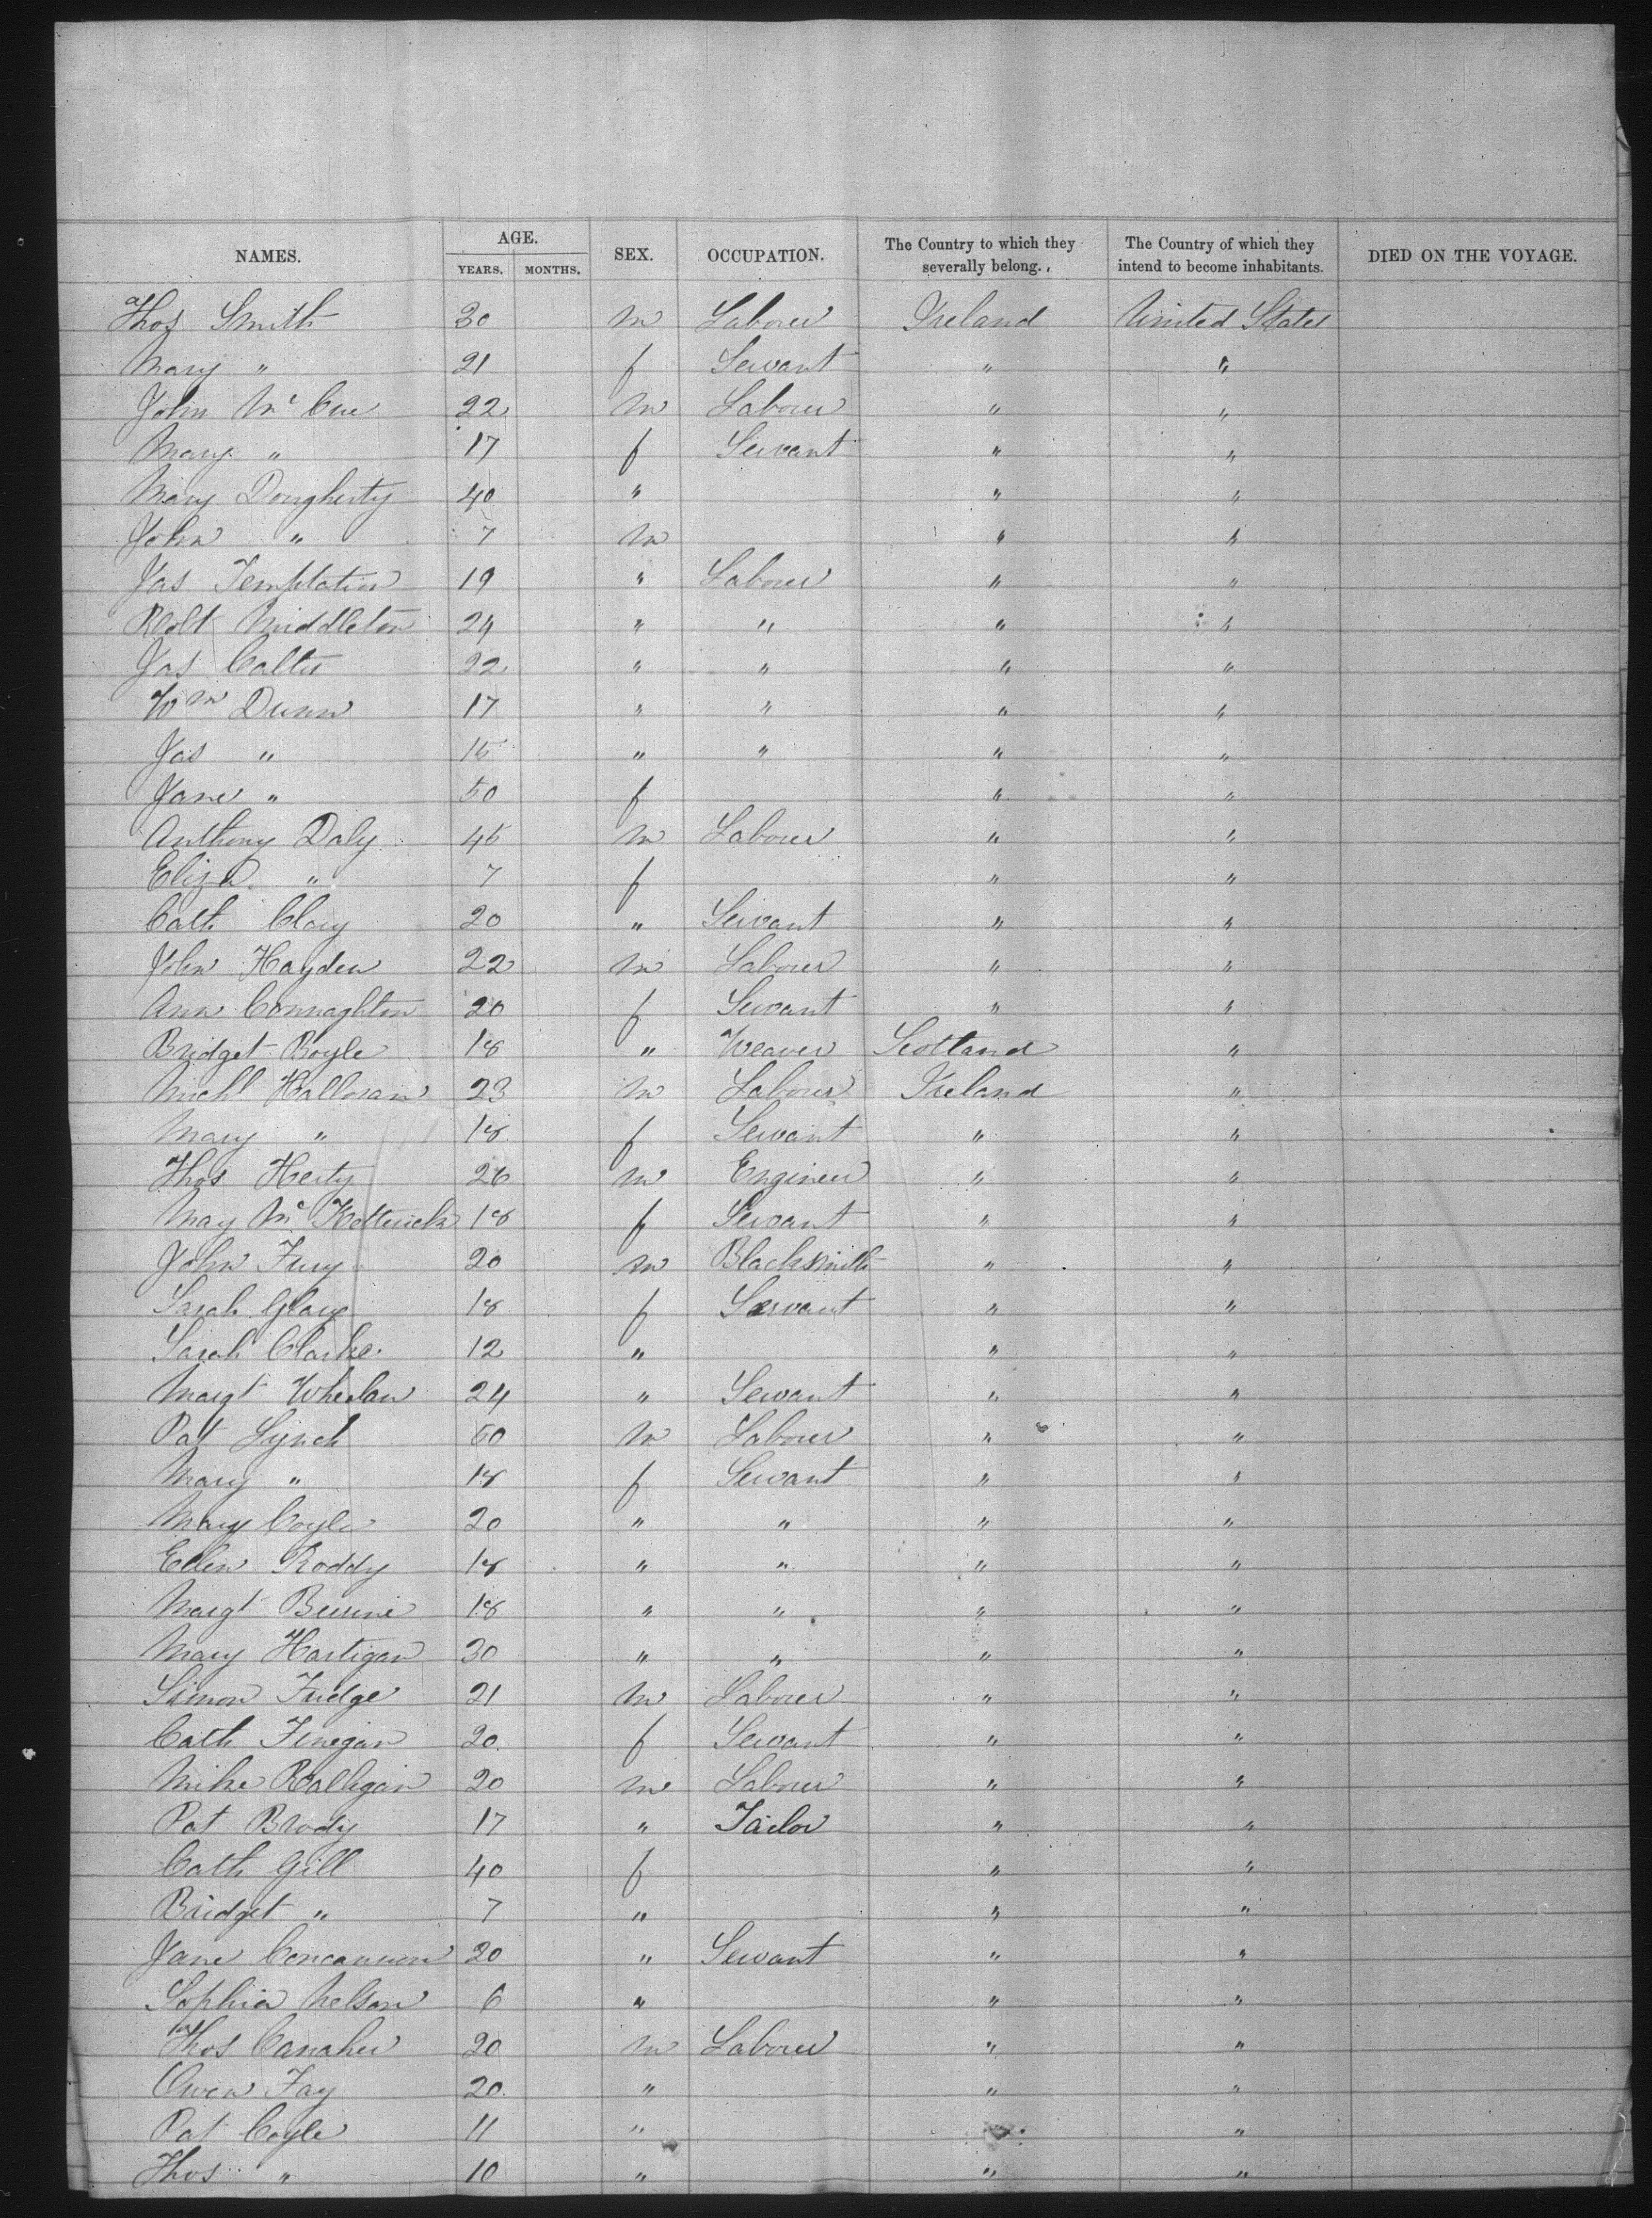 NAMES. AGE. YEARS. MONTHS. SEX. OCCUPATION. The Country to which they severally belong. The Country of which they intend to become inhabitants. DIED ON THE VOYAGE.
Thos Smith 30 m Laborer Ireland United States
Mary " 21 f Servant " "
John Mc Cue 22 m Laborer " "
Mary " 17 f Servant " "
Mary Dougherty 40 " " "
John " 7 m " "
Jas Templation 19 " Laborer " "
Robt Middleton 24 " " " "
Jas Calter 22 " " " "
Wm Dunn 17 " " " "
Jas " 15 " " " "
Jane " 50 f " "
Anthony Daly 45 m Laborer " "
Eliza " 7 f " "
Cath Clary 20 " Servant " "
John Hayden 22 m Laborer " "
Ann Connaghton 20 f Servant " "
Bridget Boyle 18 " Weaver Scotland "
Michl Halloran 23 m Laborer Ireland "
Mary " 18 f Servant " "
Thos Herty 26 m Engineer " "
May Mc Ketterick 18 f Servant " "
John Fury 20 m Blacksmith " "
Sarah Glary 18 f Servant " "
Sarah Clarke 12 " " "
Margt Whelan 24 " Servant " "
Pat Lynch 60 m Laborer " "
Mary " 18 f Servant " "
Mary Coyle 20 " " " "
Ellen Roddy 18 " " " "
Margt 18 " " " "
Mary Hartigan 30 " " " "
Simon Fudge 21 m Laborer " "
Cath Finegan 20 f Servant " "
Mike Ralligan 20 m Laborer " "
Pat Brody 17 " Tailor " "
Cath Gill 40 f " "
Bridget " 7 " " "
Jane Concannon 20 " Servant " "
Sophia Nelson 6 " " "
Thos Canaher 20 m Laborer " "
Owen Fay 20 " " "
Pat Coyle 11 " " "
Thos " 10 " " "